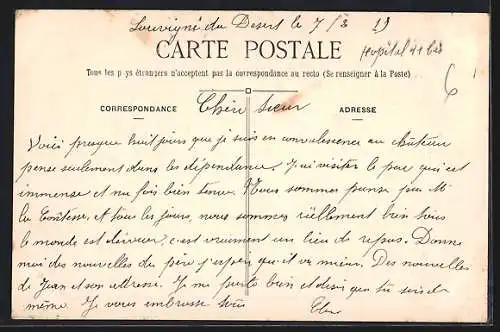 Louvigné du Desert le 7/8 19
CARTE POSTALE
Hopital 41 bis
Tous les pays étrangers n'acceptent pas la correspondance au recto (Se renseigner à la Poste)
6
CORRESPONDANCE
Chère sœur
ADRESSE
Voici presque huit jours que je suis en convalescence au château
pense seulement dans les dépendance. J'ai visiter le parc qui est
immense et ma fois bien tenu. Nous sommes panse par Mme
la Comtesse, et tous les jours, nous sommes réellement bien tous
le monde est, c'est vraiment un lieu de repos. Donne
moi des nouvelles du père j'espère qui il va mieux. Des nouvelles
de Jean et son adresse. Je me porte bien et désir que tu sois de
même. Je vous embrasse tous